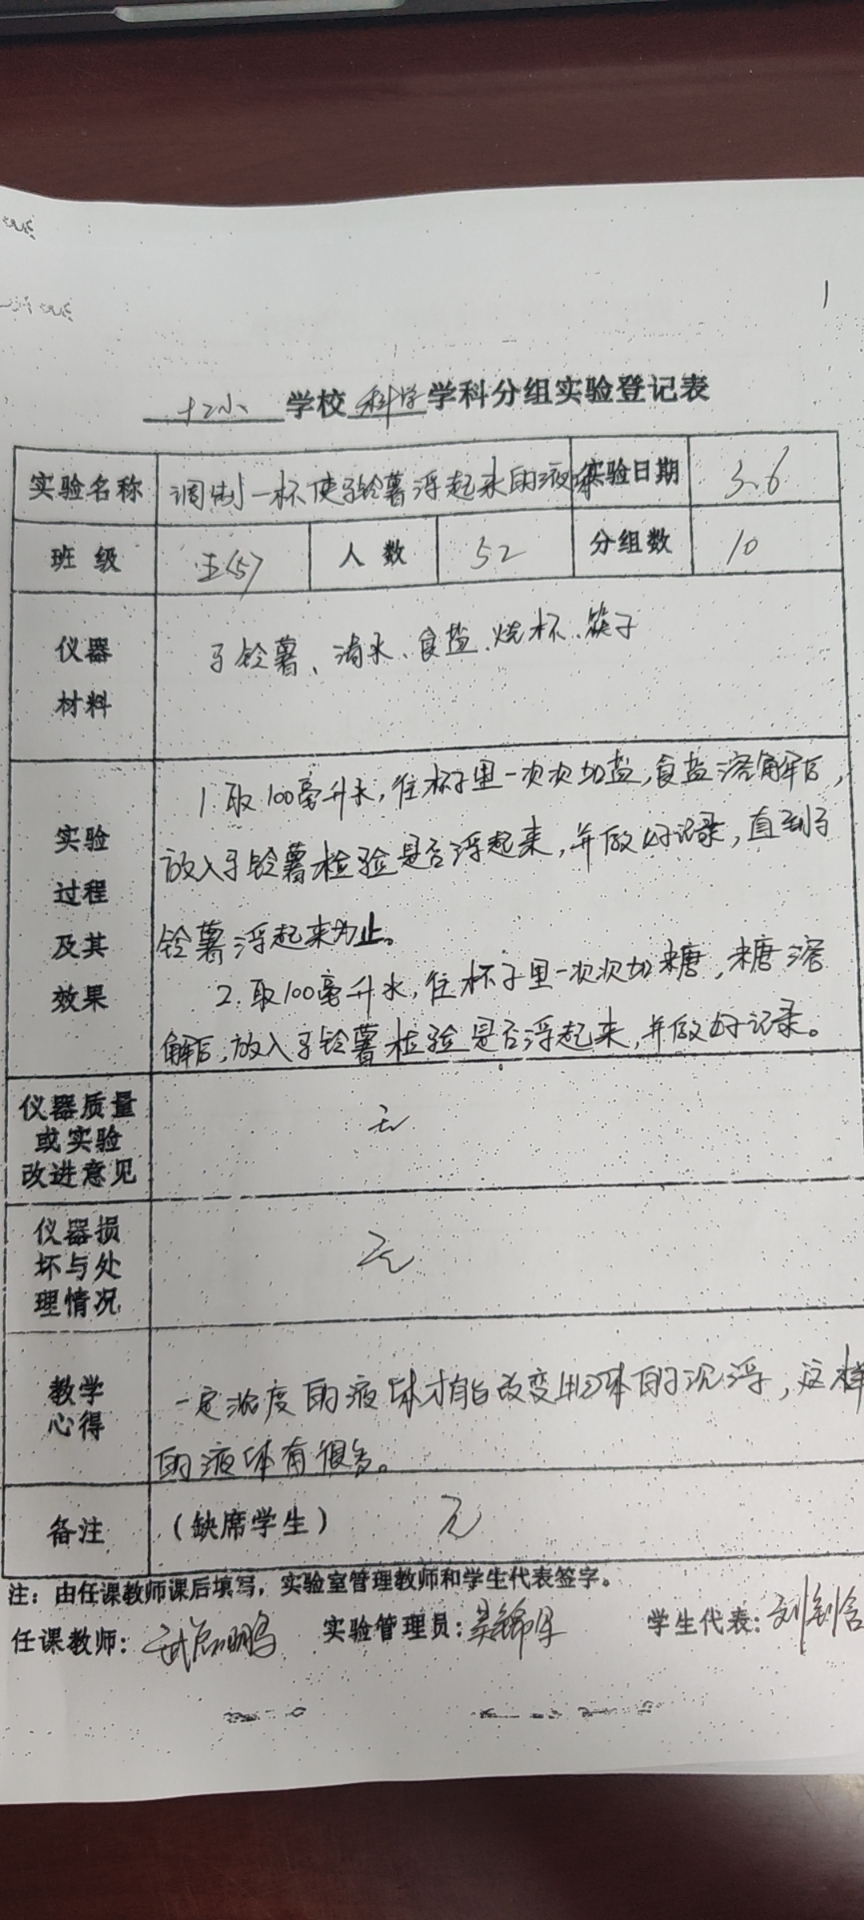 十二小 学校 科学 学科分组实验登记表
实验名称 调制一杯使马铃薯浮起来的液体 实验日期 3.6
班级 五(5) 人数 52 分组数 10
仪器材料 马铃薯、清水、食盐、烧杯、筷子
实验过程及其效果
1.取100毫升水,往杯子里一次次加盐,食盐溶解后,
放入马铃薯检验是否浮起来,并做好记录,直到马
铃薯浮起来为止。
2.取100毫升水,往杯子里一次次加糖,糖溶
解后,放入马铃薯检验是否浮起来,并做好记录。
仪器质量或实验改进意见 无
仪器损坏与处理情况 无
教学心得
一定浓度的液体才能改变物体的沉浮,这样
的液体有很多。
备注 (缺席学生) 无
注:由任课教师课后填写,实验室管理教师和学生代表签字。
任课教师: 实验管理员: 学生代表:
1